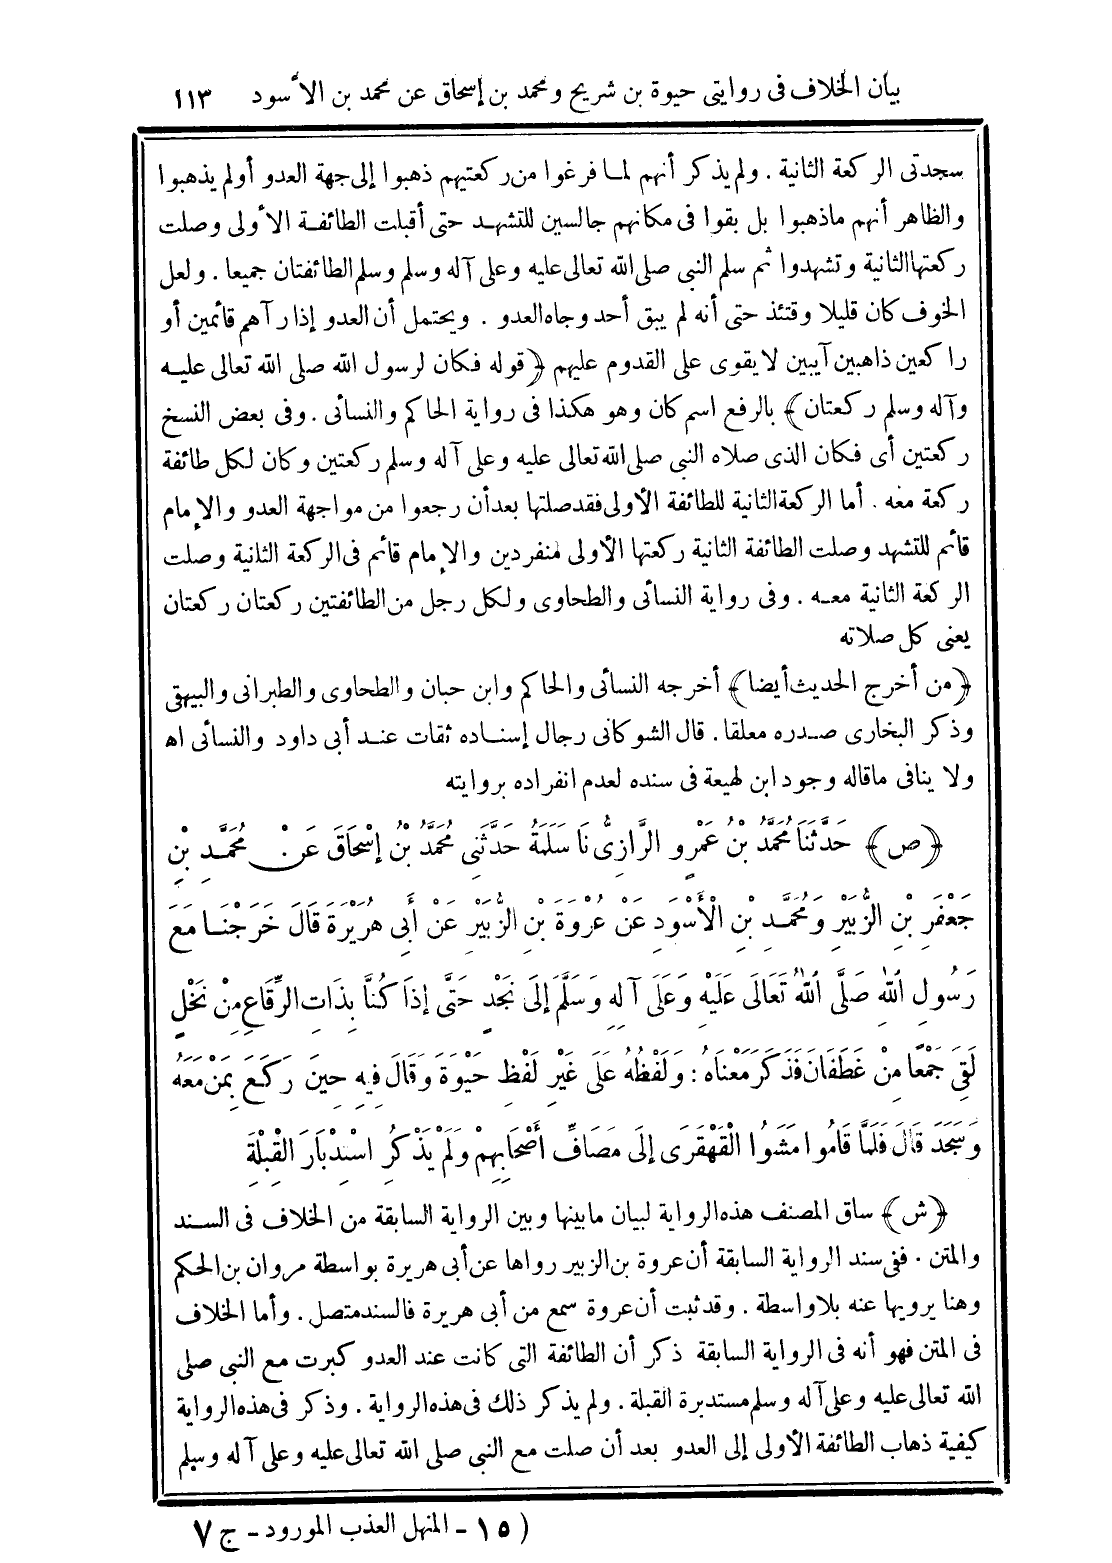 بيان الخلاف فى روايتى حيوة بن شريح ومحمد بن إسحاق عن محمد بن الأسود ١١٣
سجدتى الركعة الثانية . ولم يذكر أنهم لما فرغوا من ركعتيهم ذهبوا إلى جهة العدو أولم يذهبوا
والظاهر أنهم ماذهبوا بل بقوا فى مكانهم جالسين للتشهد حتى أقبلت الطائفة الأولى وصلت
ركعتها الثانية وتشهدوا ثم سلم النبى صلى الله تعالى عليه وعلى آله وسلم وسلم الطائفتان جميعا . ولعل
الخوف كان قليلا وقتئذ حتى أنه لم يبق أحد وجاه العدو . ويحتمل أن العدو إذا رآهم قائمين أو
راكعين ذاهبين آيبين لا يقوى على القدوم عليهم ﴿قوله فكان لرسول الله صلى الله تعالى عليه
وآله وسلم ركعتان﴾ بالرفع اسم كان وهو هكذا فى رواية الحاكم والنسائى . وفى بعض النسخ
ركعتين أى فكان الذى صلاه النبى صلى الله تعالى عليه وعلى آله وسلم ركعتين وكان لكل طائفة
ركعة معه . أما الركعة الثانية للطائفة الأولى فقد صلتها بعد أن رجعوا من مواجهة العدو والإمام
قائم للتشهد وصلت الطائفة الثانية ركعتها الأولى منفردين والإمام قائم فى الركعة الثانية وصلت
الركعة الثانية معه . وفى رواية النسائى والطحاوى ولكل رجل من الطائفتين ركعتان ركعتان
يعنى كل صلاته
﴿من أخرج الحديث أيضا﴾ أخرجه النسائى والحاكم وابن حبان والطحاوى والطبرانى والبيهقى
وذكر البخارى صدره معلقا . قال الشوكانى رجال إسناده ثقات عند أبى داود والنسائى اه
ولا ينافى ماقاله وجود ابن لهيعة فى سنده لعدم انفراده بروايته
﴿ص﴾ حَدَّثَنَا مُحَمَّدُ بْنُ عَمْرٍو الرَّازِىُّ نَا سَلَمَةُ حَدَّثَنِى مُحَمَّدُ بْنُ إِسْحَاقَ عَنْ مُحَمَّدِ بْنِ
جَعْفَرِ بْنِ الزُّبَيْرِ وَمُحَمَّدِ بْنِ الْأَسْوَدِ عَنْ عُرْوَةَ بْنِ الزُّبَيْرِ عَنْ أَبِى هُرَيْرَةَ قَالَ خَرَجْنَا مَعَ
رَسُولِ اللهِ صَلَّى اللهُ تَعَالَى عَلَيْهِ وَعَلَى آلِهِ وَسَلَّمَ إِلَى نَجْدٍ حَتَّى إِذَا كُنَّا بِذَاتِ الرِّقَاعِ مِنْ نَخْلٍ
لَقِىَ جَمْعًا مِنْ غَطَفَانَ فَذَكَرَ مَعْنَاهُ : وَلَفْظُهُ عَلَى غَيْرِ لَفْظِ حَيْوَةَ وَقَالَ فِيهِ حِينَ رَكَعَ بِمَنْ مَعَهُ
وَسَجَدَ قَالَ فَلَمَّا قَامُوا مَشَوُا الْقَهْقَرَى إِلَى مَصَافِّ أَصْحَابِهِمْ وَلَمْ يَذْكُرِ اسْتِدْبَارَ الْقِبْلَةِ
﴿ش﴾ ساق المصنف هذه الرواية لبيان ما بينها وبين الرواية السابقة من الخلاف فى السند
والمتن . ففى سند الرواية السابقة أن عروة بن الزبير رواها عن أبى هريرة بواسطة مروان بن الحكم
وهنا يرويها عنه بلا واسطة . وقد ثبت أن عروة سمع من أبى هريرة فالسند متصل . وأما الخلاف
فى المتن فهو أنه فى الرواية السابقة ذكر أن الطائفة التى كانت عند العدو كبرت مع النبى صلى
الله تعالى عليه وعلى آله وسلم مستدبرة القبلة . ولم يذكر ذلك فى هذه الرواية . وذكر فى هذه الرواية
كيفية ذهاب الطائفة الأولى إلى العدو بعد أن صلت مع النبى صلى الله تعالى عليه وعلى آله وسلم
(١٥ - المنهل العذب المورود - ج ٧